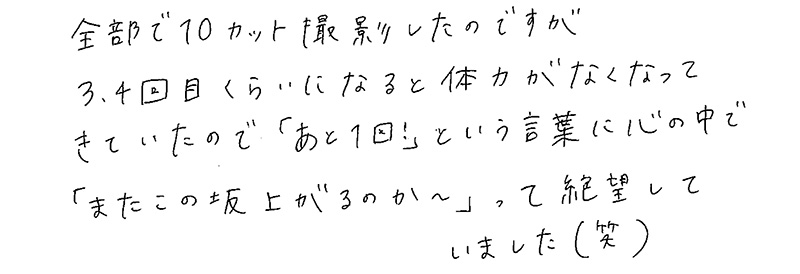 全部で10カット撮影したのですが
3.4回目くらいになると体力がなくなって
きていたので「あと1回!」という言葉に心の中で
「またこの坂上がるのか〜」って絶望して
いました(笑)